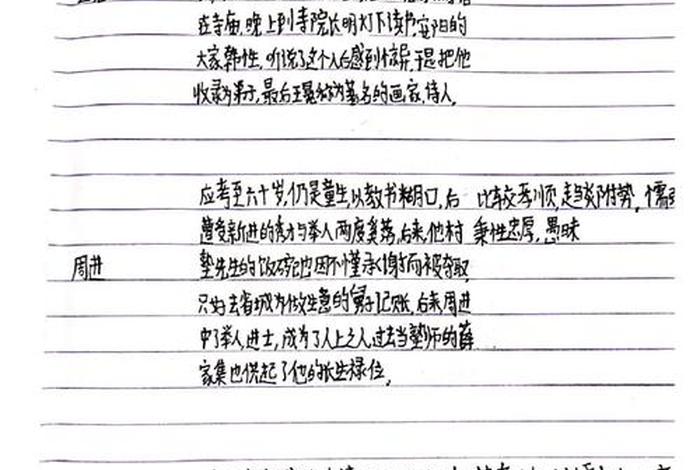 在寺庙,晚上到寺院长明灯下读书,安阳的
大家韩性,听说了这个人后感到惊异,于是把他
收录为弟子,最后王冕成为著名的画家,诗人。
应考至六十岁,仍是童生,以教书糊口,后 比较孝顺,趋炎附势,儒弱
遭受新进的秀才与举人两度奚落,后来,他村 秉性忠厚,愚昧
周进 塾先生的饭碗也因不懂承谢而被夺取
只好去省城为做生意的舅子记账,后来,周进
中了举人,进士,成为了人上之人,过去当塾师的薛
家集也供起了他的长生禄位。